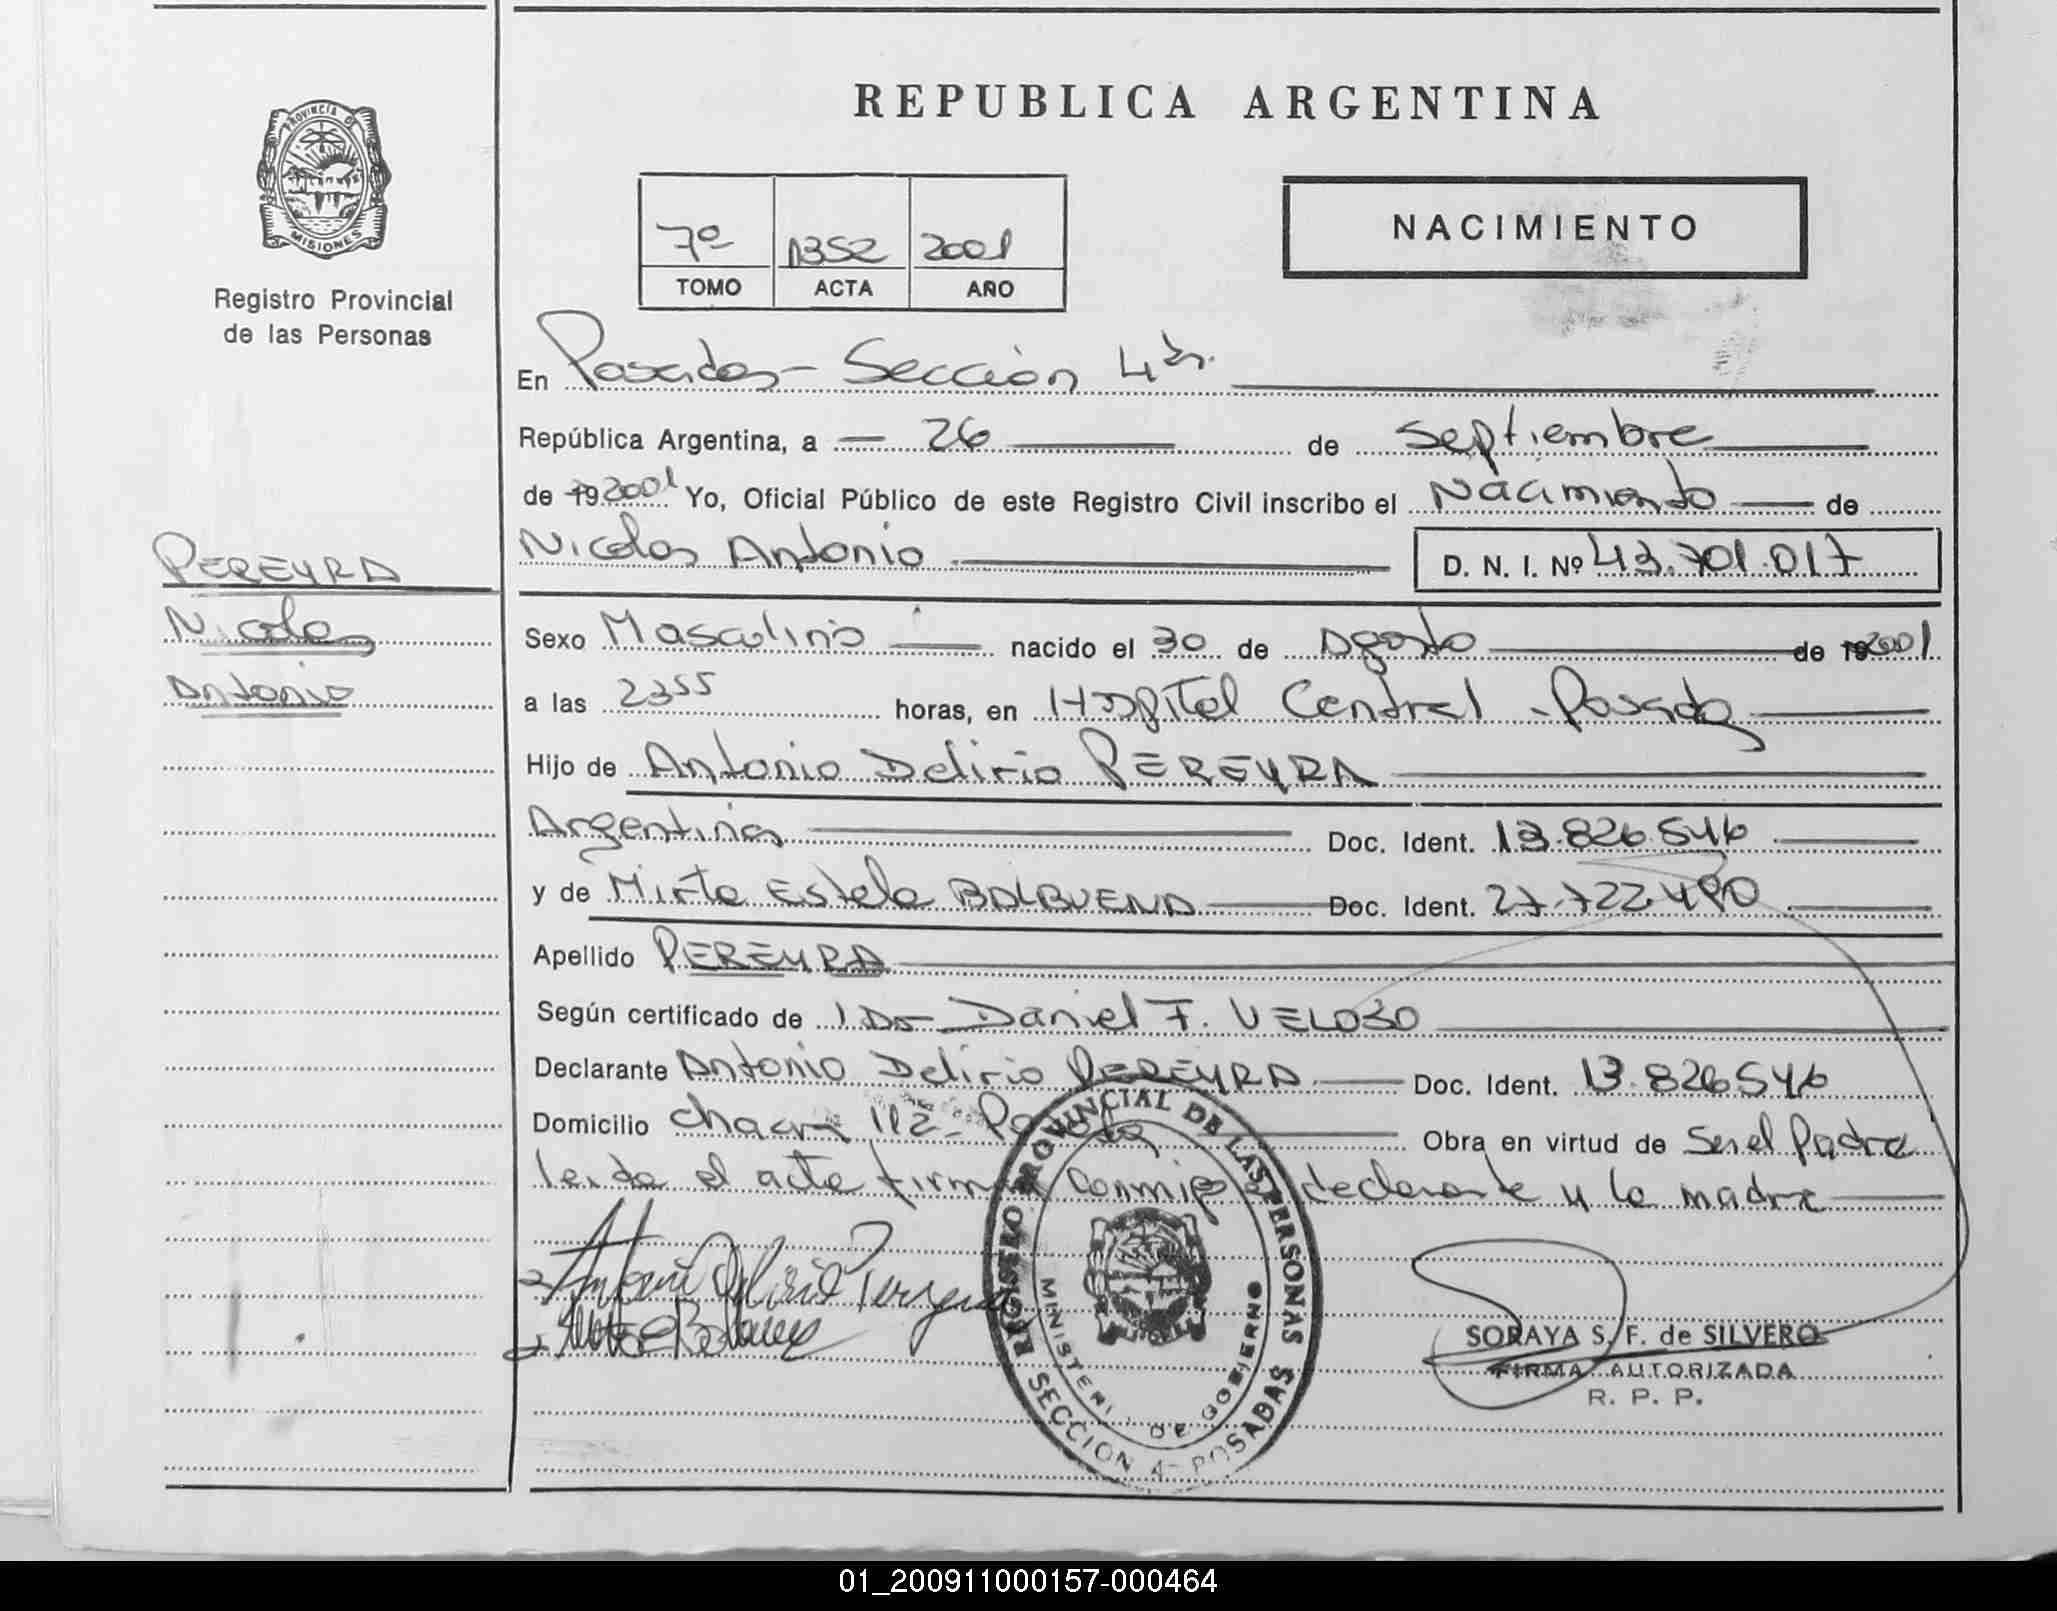 REPUBLICA ARGENTINA
PROVINCIA D
MISIONES
Registro Provincial
de las Personas
7º 1352 2001
TOMO ACTA AÑO
NACIMIENTO
En Posadas - Sección 4ta.
República Argentina, a 26 de Septiembre
de 19 2001 Yo, Oficial Público de este Registro Civil inscribo el Nacimiento de
Nicolas Antonio D. N. I. Nº 43.701.017
PEREYRA
Nicolas
Antonio
Sexo Masculino nacido el 30 de Agosto de 19 2001
a las 23 55 horas, en Hospital Central - Posadas
Hijo de Antonio Delirio PEREYRA
Argentinos Doc. Ident. 13.826.546
y de Mirta Estela BALBUENA Doc. Ident. 27.722.490
Apellido PEREYRA
Según certificado de Daniel F. VELOSO
Declarante Antonio Delirio PEREYRA Doc. Ident. 13.826546
Domicilio chacra 112 - Posadas Obra en virtud de Ser el Padre
leida el acta firman conmigo declarante y la madre
Antonio Delirio Pereyra
REGISTRO PROVINCIAL DE LAS PERSONAS
MINISTERIO DE GOBIERNO
SECCION 4ª POSADAS
SORAYA S. F. de SILVERO
FIRMA AUTORIZADA
R. P. P.
01_200911000157-000464